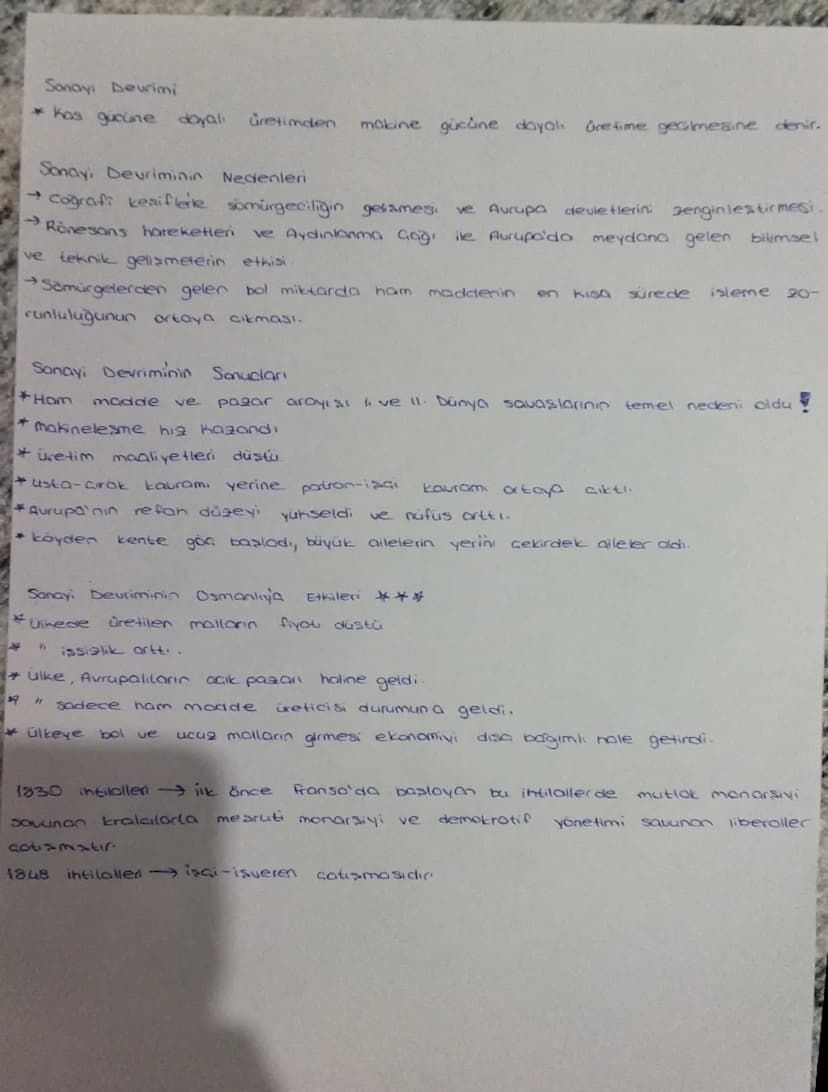 Sanayi Devrimi
* Kas gücüne dayalı üretimden makine gücüne dayalı üretime geçilmesine denir.
Sanayi Devriminin Nedenleri
→ Coğrafi keşiflerle sömürgeciliğin gelişmesi ve Avrupa devletlerini zenginleştirmesi.
→ Rönesans hareketleri ve Aydınlanma Çağı ile Avrupa'da meydana gelen bilimsel
ve teknik gelişmelerin etkisi.
→ Sömürgelerden gelen bol miktarda ham maddenin en kısa sürede işleme zo-
runluluğunun ortaya çıkması.
Sanayi Devriminin Sonuçları
* Ham madde ve pazar arayışı I. ve II. Dünya savaşlarının temel nedeni oldu!
* makineleşme hız kazandı
* üretim maaliyetleri düştü
* usta-çırak kavramı yerine patron-işçi kavramı ortaya çıktı.
* Avrupa'nın refah düzeyi yükseldi ve nüfus arttı.
* köyden kente göç başladı, büyük ailelerin yerini çekirdek aileler aldı.
Sanayi Devriminin Osmanlıya Etkileri ***
* ülkede üretilen malların fiyatı düştü
* " işsizlik arttı.
* ülke, Avrupalıların açık pazarı haline geldi.
* " sadece ham madde üreticisi durumuna geldi.
* ülkeye bol ve ucuz malların girmesi ekonomiyi dışa bağımlı hale getirdi.
1830 ihtilalleri → ilk önce Fransa'da başlayan bu ihtilallerde mutlak monarşiyi
savunan kralcılarla meşruti monarşiyi ve demokratif yönetimi savunan liberaller
çatışmıştır.
1848 ihtilalleri → işçi-işveren çatışmasıdır.